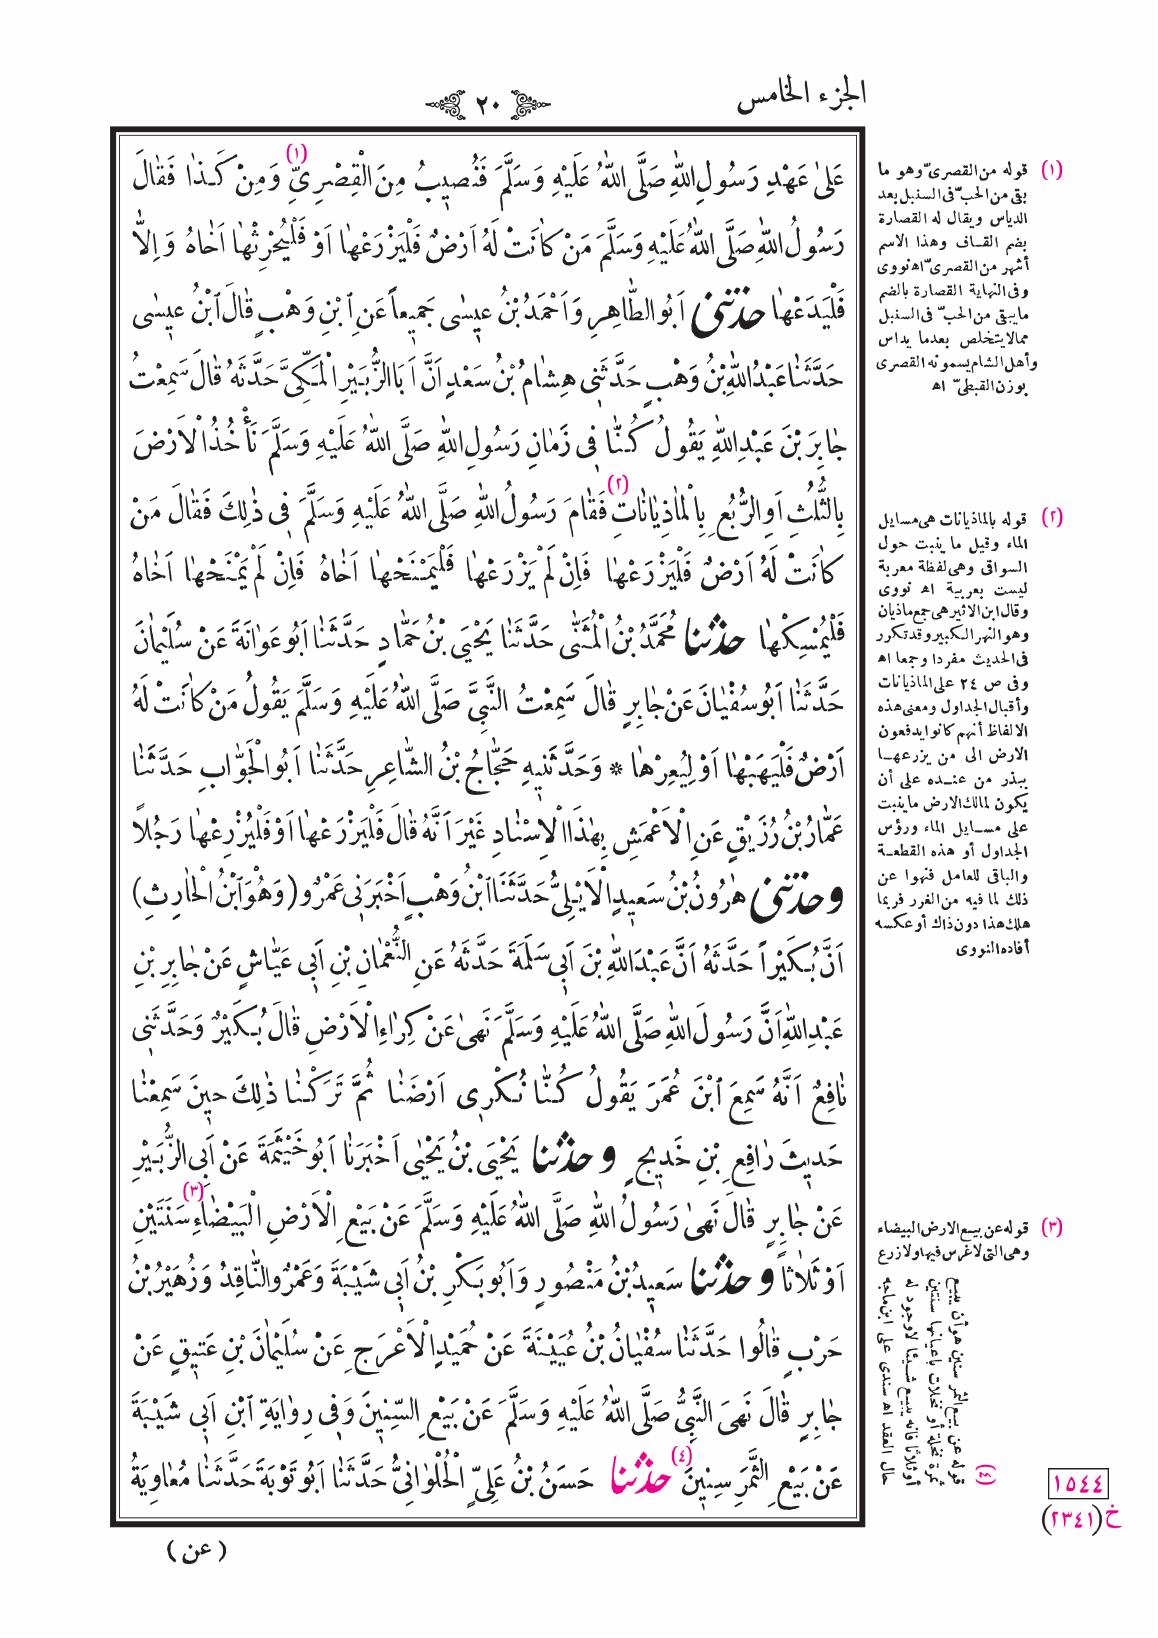 الجزء الخامس
٢٠
عَلىٰ عَهْدِ رَسُولِ اللّٰهِ صَلَّى اللّٰهُ عَلَيْهِ وَسَلَّمَ فَنُصِيبُ مِنَ الْقِصْرِيِّ (١) وَمِنْ كَذَا فَقَالَ
رَسُولُ اللّٰهِ صَلَّى اللّٰهُ عَلَيْهِ وَسَلَّمَ مَنْ كَانَتْ لَهُ اَرْضٌ فَلْيَزْرَعْهَا اَوْ فَلْيُحْرِثْهَا اَخَاهُ وَاِلاّٰ
فَلْيَدَعْهَا حدثنى اَبُو الطَّاهِرِ وَاَحْمَدُ بْنُ عِيسٰى جَمِيعاً عَنِ ابْنِ وَهْبٍ قَالَ ابْنُ عِيسٰى
حَدَّثَنَا عَبْدُ اللّٰهِ بْنُ وَهْبٍ حَدَّثَنِى هِشَامُ بْنُ سَعْدٍ اَنَّ اَبَا الزُّبَيْرِ الْمَكِّىَّ حَدَّثَهُ قَالَ سَمِعْتُ
جَابِرَ بْنَ عَبْدِ اللّٰهِ يَقُولُ كُنَّا فِى زَمَانِ رَسُولِ اللّٰهِ صَلَّى اللّٰهُ عَلَيْهِ وَسَلَّمَ نَأْخُذُ الْاَرْضَ
بِالثُّلُثِ اَوِ الرُّبُعِ بِالْمَاذِيَانَاتِ (٢) فَقَامَ رَسُولُ اللّٰهِ صَلَّى اللّٰهُ عَلَيْهِ وَسَلَّمَ فِى ذٰلِكَ فَقَالَ مَنْ
كَانَتْ لَهُ اَرْضٌ فَلْيَزْرَعْهَا فَاِنْ لَمْ يَزْرَعْهَا فَلْيَمْنَحْهَا اَخَاهُ فَاِنْ لَمْ يَمْنَحْهَا اَخَاهُ
فَلْيُمْسِكْهَا حدثنا مُحَمَّدُ بْنُ الْمُثَنّٰى حَدَّثَنَا يَحْيَى بْنُ حَمَّادٍ حَدَّثَنَا اَبُو عَوَانَةَ عَنْ سُلَيْمَانَ
حَدَّثَنَا اَبُو سُفْيَانَ عَنْ جَابِرٍ قَالَ سَمِعْتُ النَّبِىَّ صَلَّى اللّٰهُ عَلَيْهِ وَسَلَّمَ يَقُولُ مَنْ كَانَتْ لَهُ
اَرْضٌ فَلْيَهَبْهَا اَوْ لِيُعِرْهَا * وَحَدَّثَنِيهِ حَجَّاجُ بْنُ الشَّاعِرِ حَدَّثَنَا اَبُو الْجَوَّابِ حَدَّثَنَا
عَمَّارُ بْنُ رُزَيْقٍ عَنِ الْاَعْمَشِ بِهٰذَا الْاِسْنَادِ غَيْرَ اَنَّهُ قَالَ فَلْيَزْرَعْهَا اَوْ فَلْيُزْرِعْهَا رَجُلاً
وحدثنى هٰرُونُ بْنُ سَعِيدٍ الْاَيْلِىُّ حَدَّثَنَا ابْنُ وَهْبٍ اَخْبَرَنِى عَمْرٌو (وَهْوَ ابْنُ الْحَارِثِ)
اَنَّ بُكَيْراً حَدَّثَهُ اَنَّ عَبْدَ اللّٰهِ بْنَ اَبِى سَلَمَةَ حَدَّثَهُ عَنِ النُّعْمَانِ بْنِ اَبِى عَيَّاشٍ عَنْ جَابِرِ بْنِ
عَبْدِ اللّٰهِ اَنَّ رَسُولَ اللّٰهِ صَلَّى اللّٰهُ عَلَيْهِ وَسَلَّمَ نَهىٰ عَنْ كِرَاءِ الْاَرْضِ قَالَ بُكَيْرٌ وَحَدَّثَنِى
نَافِعٌ اَنَّهُ سَمِعَ ابْنَ عُمَرَ يَقُولُ كُنَّا نُكْرِى اَرْضَنَا ثُمَّ تَرَكْنَا ذٰلِكَ حِينَ سَمِعْنَا
حَدِيثَ رَافِعِ بْنِ خَدِيجٍ وحدثنا يَحْيَى بْنُ يَحْيٰى اَخْبَرَنَا اَبُو خَيْثَمَةَ عَنْ اَبِى الزُّبَيْرِ
عَنْ جَابِرٍ قَالَ نَهىٰ رَسُولُ اللّٰهِ صَلَّى اللّٰهُ عَلَيْهِ وَسَلَّمَ عَنْ بَيْعِ الْاَرْضِ الْبَيْضَاءِ (٣) سَنَتَيْنِ
اَوْ ثَلَاثاً وحدثنا سَعِيدُ بْنُ مَنْصُورٍ وَاَبُو بَكْرِ بْنُ اَبِى شَيْبَةَ وَعَمْرٌو النَّاقِدُ وَزُهَيْرُ بْنُ
حَرْبٍ قَالُوا حَدَّثَنَا سُفْيَانُ بْنُ عُيَيْنَةَ عَنْ حُمَيْدٍ الْاَعْرَجِ عَنْ سُلَيْمَانَ بْنِ عَتِيقٍ عَنْ
جَابِرٍ قَالَ نَهَى النَّبِىُّ صَلَّى اللّٰهُ عَلَيْهِ وَسَلَّمَ عَنْ بَيْعِ السِّنِينَ وَفِى رِوَايَةِ ابْنِ اَبِى شَيْبَةَ
عَنْ بَيْعِ الثَّمَرِ سِنِينَ (٤) حدثنا حَسَنُ بْنُ عَلِىٍّ الْحُلْوَانِىُّ حَدَّثَنَا اَبُو تَوْبَةَ حَدَّثَنَا مُعَاوِيَةُ
( عن )
(١) قوله من القصرىّ وهو ما
بقى من الحبّ فى السنبل بعد
الدياس ويقال له القصارة
بضم القاف وهذا الاسم
أشهر من القصرىّ اه نووى
وفى النهاية القصارة بالضم
مايبقى من الحبّ فى السنبل
ممالايتخلص بعدما يداس
وأهل الشام يسمونه القصرى
بوزن القبطىّ اه
(٢) قوله بالماذيانات هى مسايل
الماء وقيل ما ينبت حول
السواقى وهى لفظة معربة
ليست بعربية اه نووى
وقال ابن الاثير هى جمع ماذيان
وهو النهر الكبير وقد تكرر
فى الحديث مفردا وجمعا اه
وفى ص ٢٤ على الماذيانات
وأقبال الجداول ومعنى هذه
الالفاظ أنهم كانوا يدفعون
الارض الى من يزرعها
ببذر من عنده على أن
يكون لمالك الارض ماينبت
على مسايل الماء ورؤس
الجداول أو هذه القطعة
والباقى للعامل فنهوا عن
ذلك لما فيه من الغرر فربما
هلك هذا دون ذاك أو عكسه
أفاده النووى
(٣) قوله عن بيع الارض البيضاء
وهى التى لاغرس فيها ولازرع
(٤) قوله عن بيع الثمر سنين هو أن يبيع
ثمرة نخلة أو نخلات باعيانها سنتين
أو ثلاثا فانه يبيع شيئا لاوجود له
حال العقد اه سندى على ابن ماجه
١٥٤٤
خ (٢٣٤١)